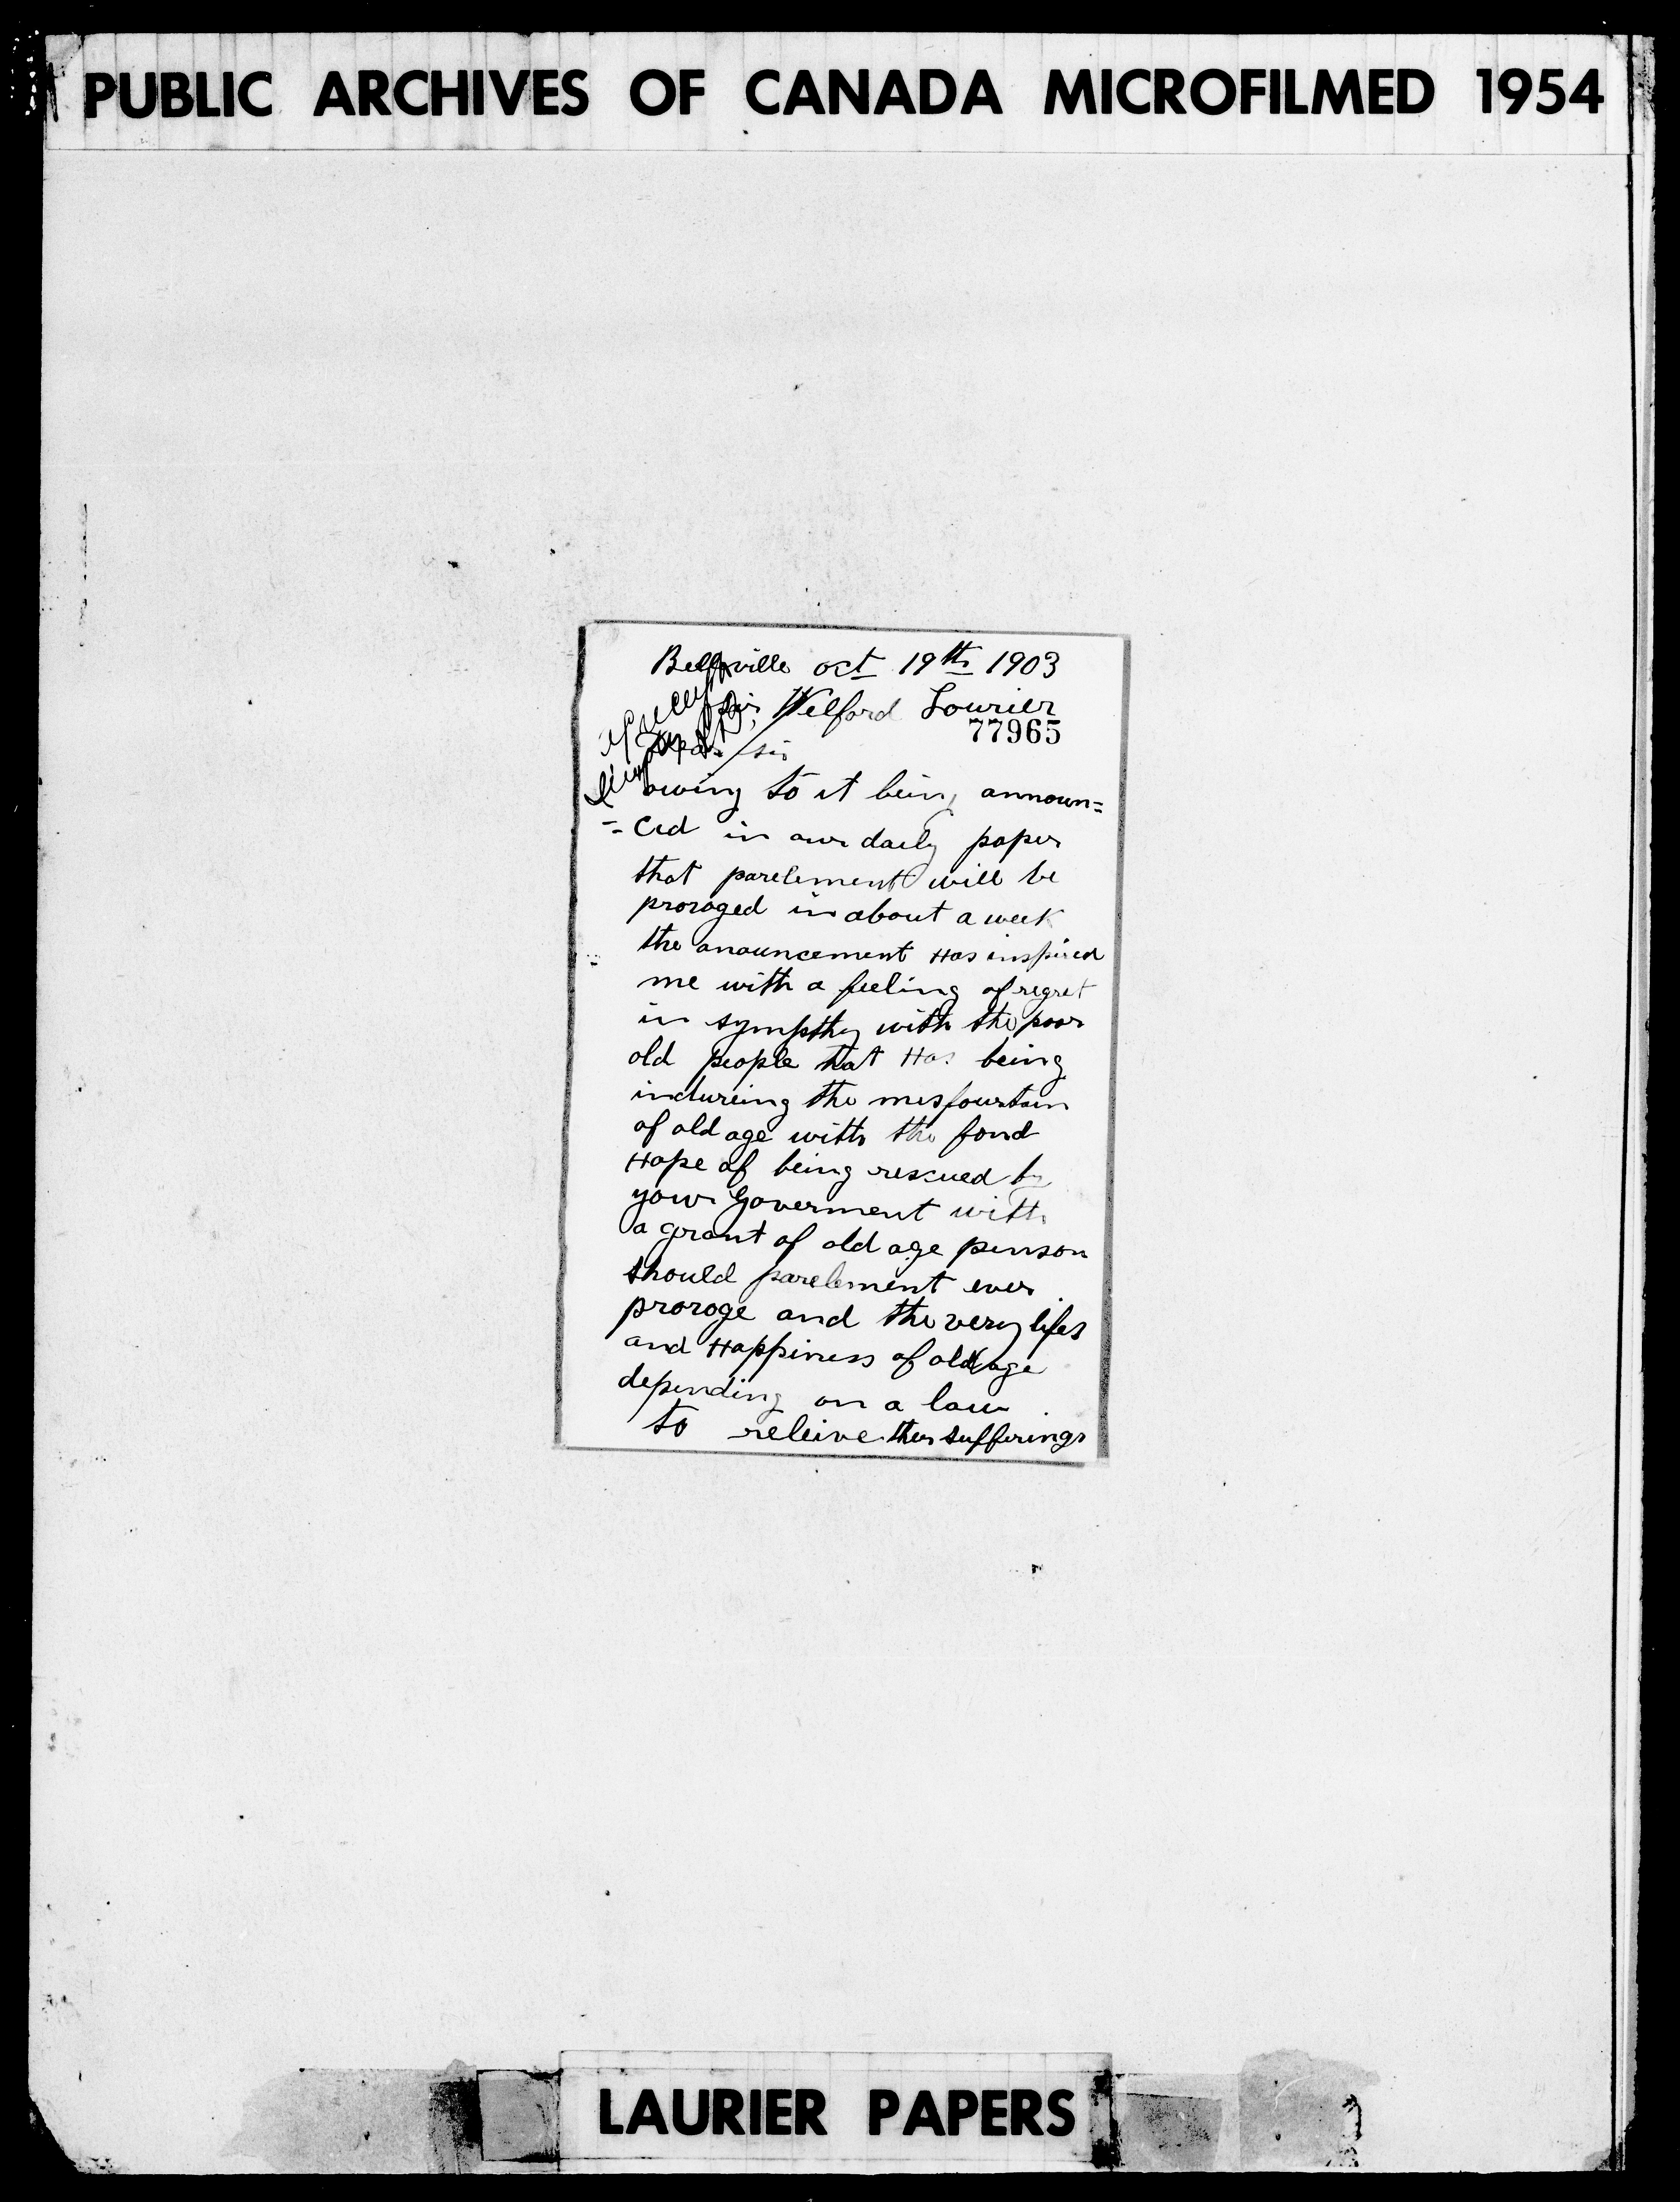 PUBLIC ARCHIVES OF CANADA MICROFILMED 1954
Belleville oct 19th 1903
Sir Welford Lourier
77965
Dear sir
owing to it being announ=
=ced in our daily paper
that parelement will be
proroged in about a week
the anouncement Has inspired
me with a feeling of regret
in sympthy with the poor
old people that Has being
indureing the misfourtain
of old age with the fond
Hope of being rescued by
your Goverment with
a grant of old age penson
should parelement ever
proroge and the very lifes
and Happiness of old age
depending on a law
to releive ther sufferings
LAURIER PAPERS